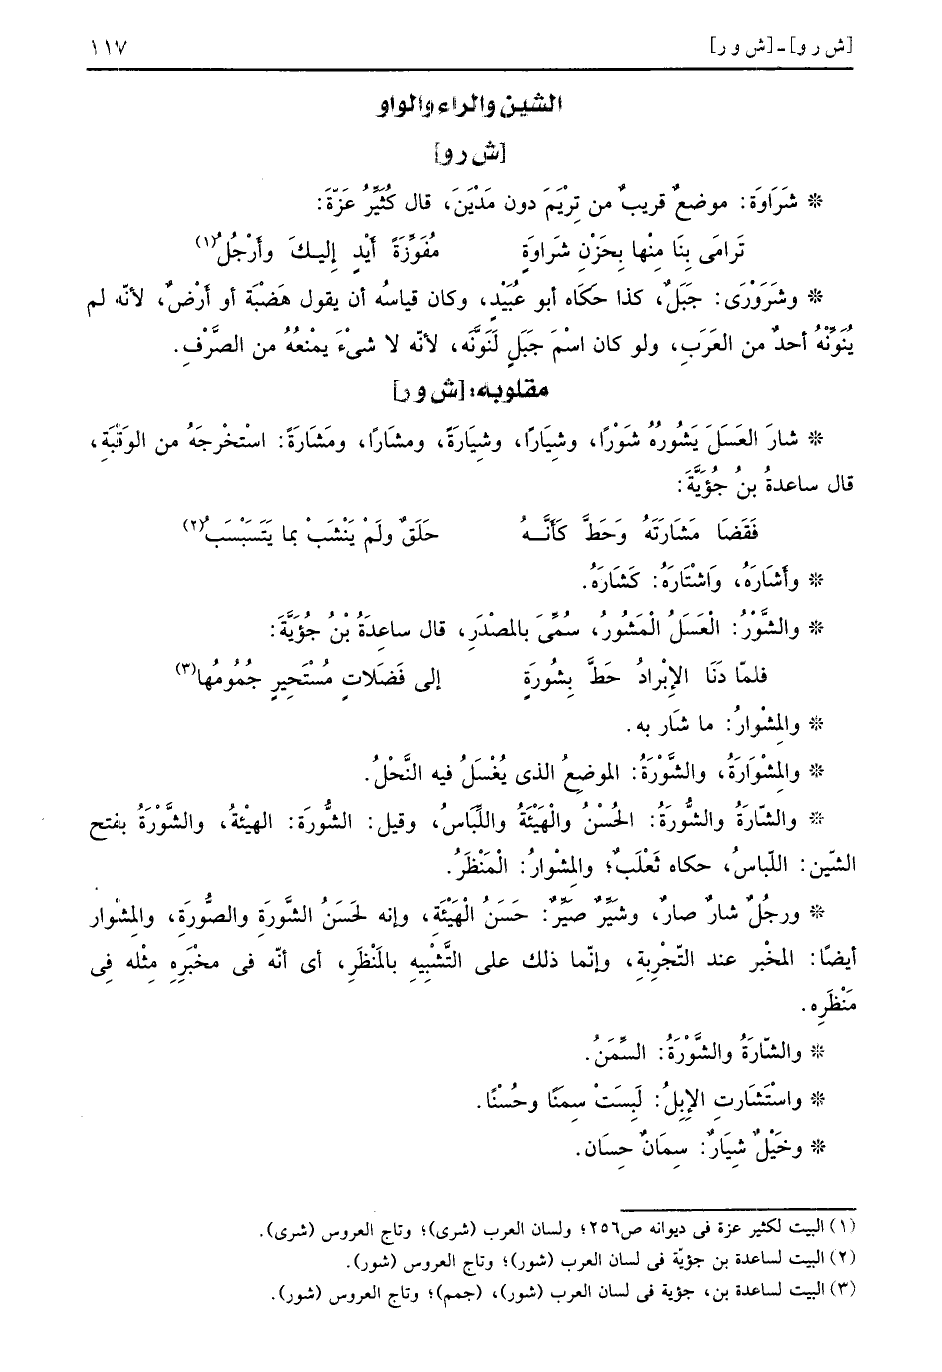 [ش ر و] ـ [ش و ر]
١١٧
الشين والراء والواو
[ش ر و]
* شَرَاوَة: موضعٌ قريبٌ من تِرْيَمَ دون مَدْيَنَ، قال كُثَيِّرُ عَزّةَ:
تَرامَى بِنَا مِنْها بِحَزْنِ شَراوَةٍ مُفَوِّزَةً أَيْدٍ إليـكَ وأَرْجُلُ(١)
* وشَرَوْرَى: جَبَلٌ، كذا حَكَاه أبو عُبَيْدٍ، وكان قياسُه أن يقول هَضبَة أو أَرْضٌ، لأنّه لم
يُنَوِّنْهُ أحدٌ من العَرَبِ، ولو كان اسْمَ جَبَلٍ لَنَوَّنَه، لأنّه لا شىْءَ يمْنعُهُ من الصَّرْفِ.
مقلوبه: [ش و ر]
* شارَ العَسَلَ يَشُورُهُ شَوْرًا، وشِيَارًا، وشِيَارَةً، ومشارًا، ومَشارَةً: اسْتخْرجَهُ من الوَقْبَة،
قال ساعدةُ بنُ جُؤَيَّةَ:
فَقَضَا مَشارَتَهُ وَحَطَّ كَأنَّـهُ حَلَقٌ ولَمْ يَنْشَبْ بما يَتَسَبْسَبُ(٢)
* وأَشَارَهُ، وَاشْتَارَهُ: كَشَارَهُ.
* والشَّوْرُ: الْعَسَلُ الْمَشُورُ، سُمِّىَ بالمصْدَرِ، قال ساعدةُ بْنُ جُؤَيَّةَ:
فلمّا دَنَا الإبْرادُ حَطَّ بِشُورَةٍ إلى فَضَلاتٍ مُسْتَحِيرٍ جُمُومُها(٣)
* والمِشْوارُ: ما شَار به.
* والمِشْوَارَةُ، والشَّوْرَةُ: الموضعُ الذى يُعْسَلُ فيه النَّحْلُ.
* والشّارَةُ والشُّورَةُ: الحُسْنُ والْهَيْئَةُ واللِّبَاسُ، وقيل: الشُّورَة: الهيئةُ، والشَّوْرَةُ بفتح
الشّين: اللّباسُ، حكاه ثَعْلَبٌ؛ والمِشْوارُ: الْمَنْظَرُ.
* ورجُلٌ شارٌ صارٌ، وشيِّرٌ صيِّرٌ: حَسَنُ الْهَيْئَةِ، وإنه لحَسَنُ الشَّورَةِ والصُّورَةِ، والمِشْوار
أيضًا: المخْبر عند التّجْرِبةِ، وإنّما ذلك على التَّشْبيهِ بالمَنْظَرِ، أى أنّه فى مخْبَرِهِ مثْله فِى
مَنْظَرِه.
* والشّارَةُ والشَّوْرَةُ: السِّمَنُ.
* واسْتَشَارتِ الإبِلُ: لَبِسَتْ سِمَنًا وحُسْنًا.
* وخَيْلٌ شِيَارٌ: سِمَانٌ حِسَان.
(١) البيت لكثير عزة فى ديوانه ص٢٥٦؛ ولسان العرب (شرى)؛ وتاج العروس (شرى).
(٢) البيت لساعدة بن جؤيّة فى لسان العرب (شور)؛ وتاج العروس (شور).
(٣) البيت لساعدة بن، جؤية فى لسان العرب (شور)، (جمم)؛ وتاج العروس (شور).